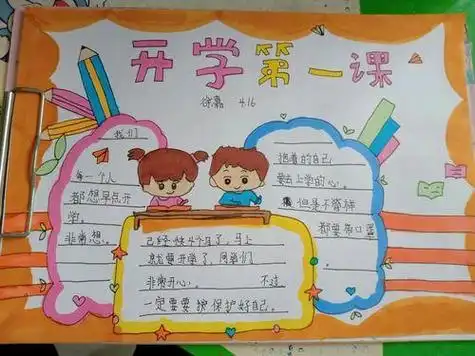 开学第一课
徐嘉 416
我们
每一个人
都想早点开
学。
非常想。
已经快4个月了,马上
就要开学了,同学们
非常开心。 不过
一定要要 保护好自己。
的自己
要去上学的心。
但是不管
都要 口罩
。